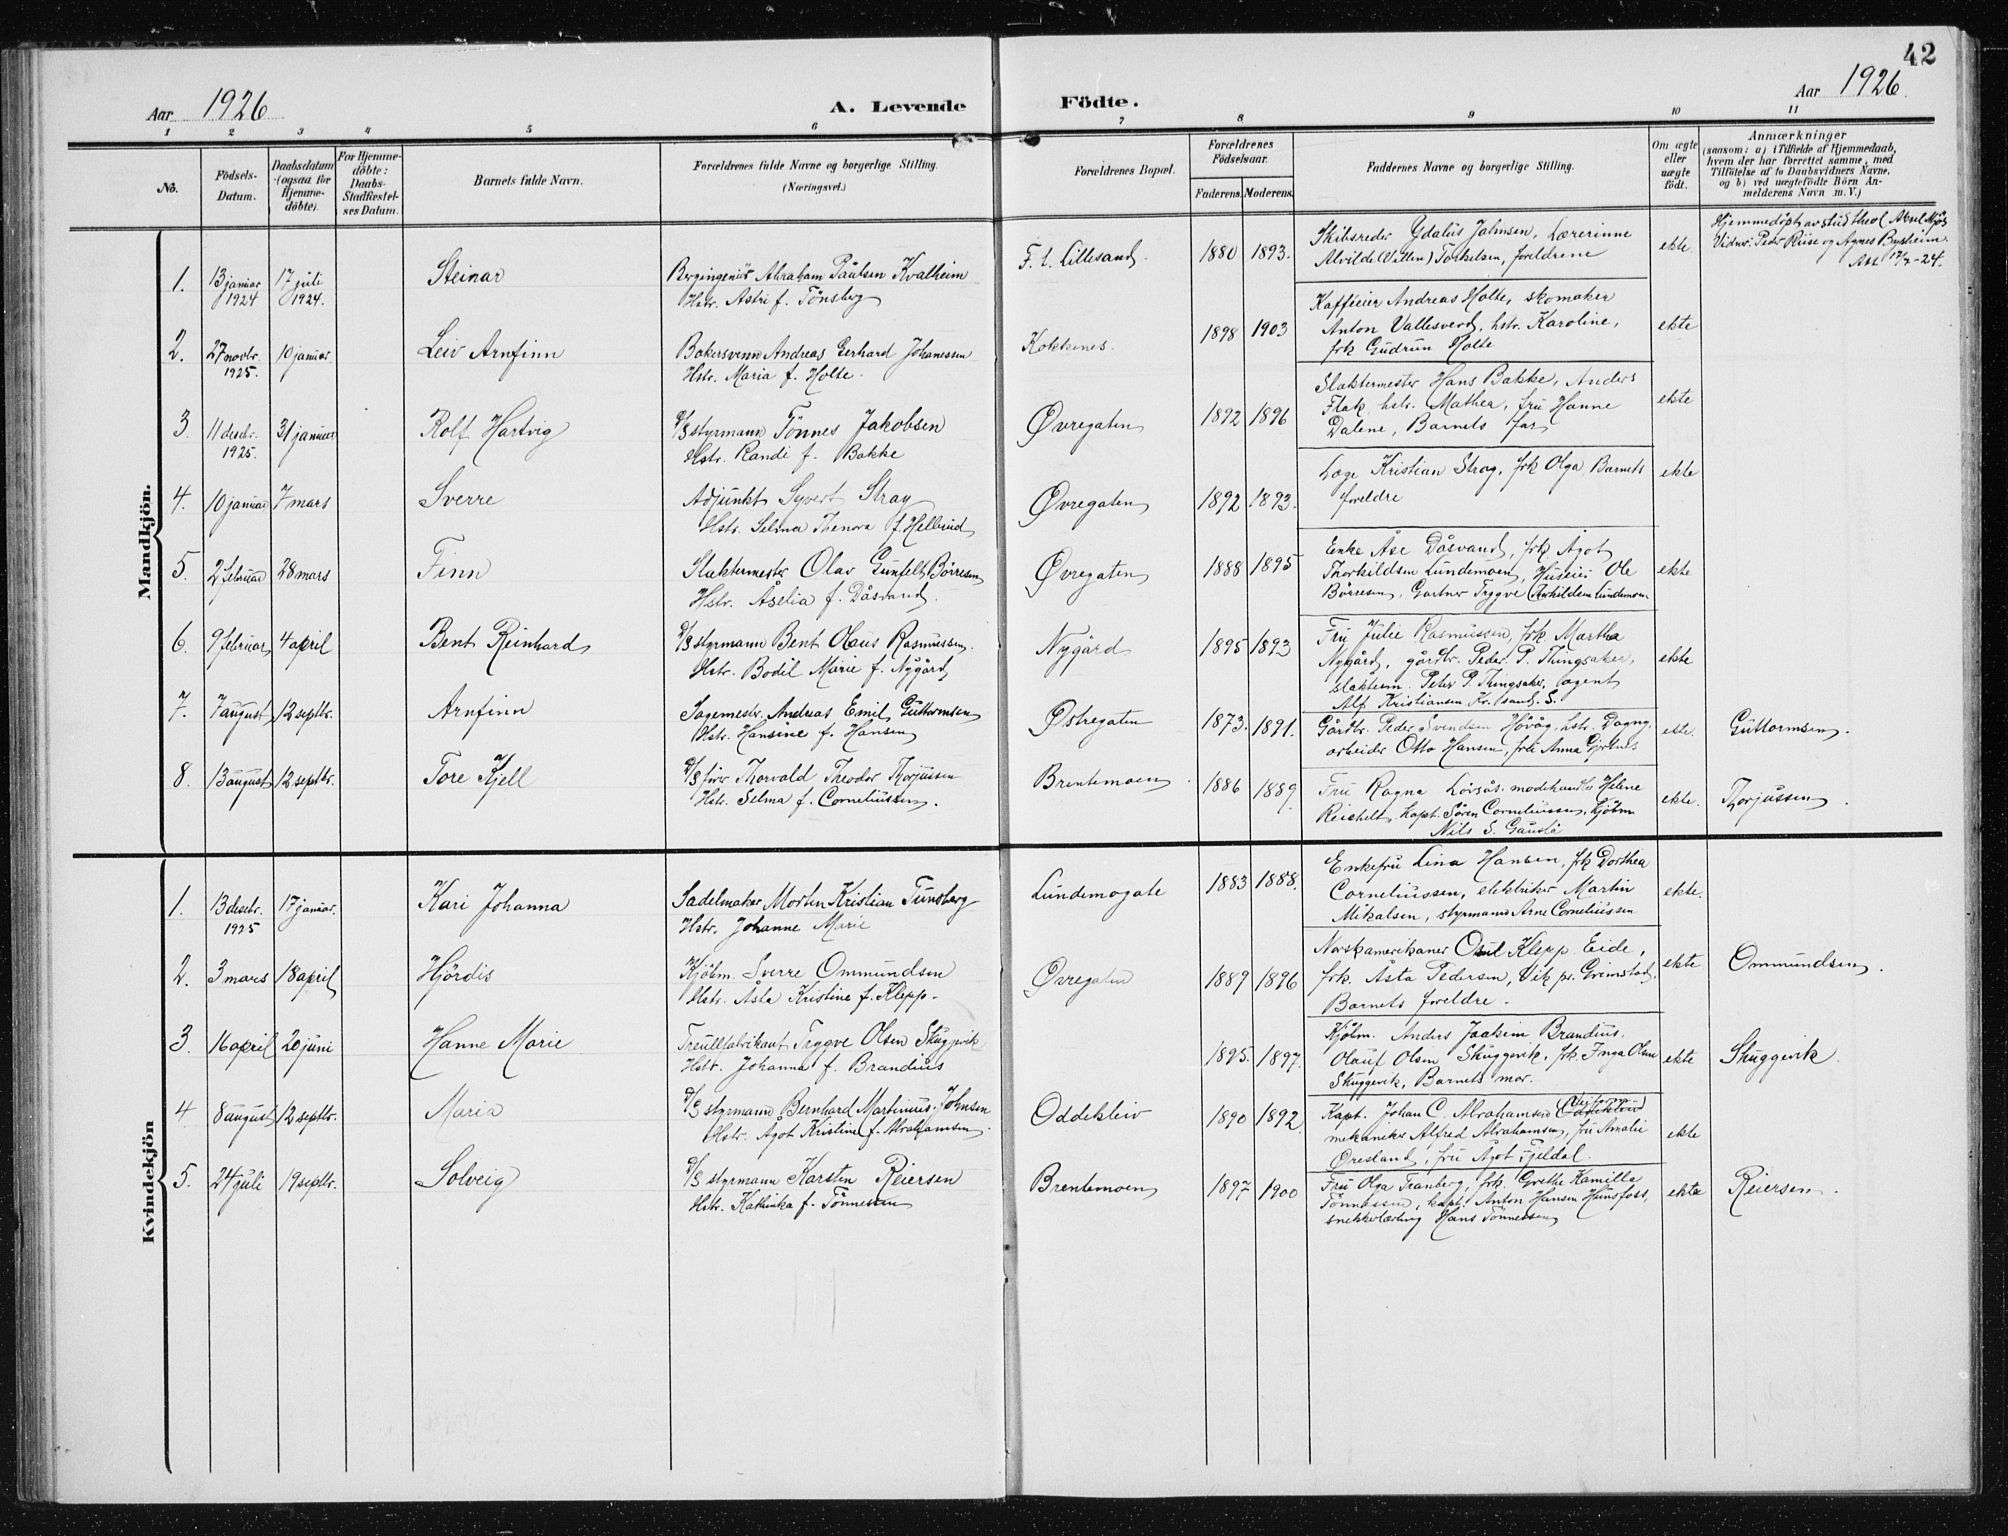 42
Aar 1926 A. Levende Födte. Aar 1926
1 2 3 4 5 6 7 8 9 10 11
No.
Födsels-
Datum.
Daabsdatum
(ogsaa for
Hjemme-
döbte).
For Hjemme-
döbte:
Daabs-
Stadfæstel-
ses Datum.
Barnets fulde Navn.
Forældrenes fulde Navne og borgerlige Stilling.
(Næringsvei.)
Forældrenes Bopæl.
Forældrenes
Födselsaar.
Faderens. Moderens.
Faddernes Navne og borgerlige Stilling.
Om ægte
eller
uægte
födt.
Anmærkninger
(saasom: a) i Tilfælde af Hjemmedaab,
hvem der har forrettet samme, med
Tilföielse af to Daabsvidners Navne,
og b) ved uægtefödte Börn An-
melderens Navn m. V.)
Mandkjön.
1. 13 januar 17 juli Steinar Bergingeniör Abraham Paulsen Kvalheim F. t. Lillesand 1880 1893. Skibsreder Ydalus Johnsen, Lærerinne ekte Hjemmedöpt av stud theol Aksel
1924 1924. Hstr. Astri f. Tönsberg Alvilde Torkelsen, foreldrene Vidner: Peder Riise og Agnes Bysheim.
17/7-24.
2. 27 novbr. 10 januar. Leiv Arnfinn Bakersvenn Andreas Gerhard Johanessen Kokkenes. 1898 1903 Kafféeier Andreas Holte, skomaker ekte
1925. Hstr. Maria f. Holte. Anton Vallesverd, hstr. Karoline,
frk Gudrun Holte
3. 11 desbr. 31 januar Rolf Hartvig D/S styrmann Tönnes Jakobsen Øvregaten 1892 1896 Slaktermester Hans Bakke, Anders ekte
1925. Hstr. Randi f. Bakke Flak, hstr. Mathea, fru Hanne
Dalene, Barnets far
4. 10 januar 7 mars Sverre Adjunkt Syvert Stray Øvregaten 1892 1893. Læge Kristian Stray, frk Olga Barnets ekte
Hstr. Selma Thenora f. foreldre
5. 2 februar 28 mars Finn Slaktermester Olav Gunfelt Börresen Øvregaten 1888 1895 Enke Åse Dåsvand, frk Agot ekte
Hstr. Aselia f. Dåsvand. Thorkildsen Lundemoen, Huseier Ole
Börresen, Gartner Tryggve Lundemoen
6. 9 februar 4 april Bent Reinhard D/S styrmann Bent Olaus Rasmussen. Nygård 1895 1893 Fru Julie Rasmussen, frk Martha ekte
Hstr. Bodil Marie f. Nygård Nygård, gårdbr. Peder P. Thingsaker,
slaktern. Peter P. Thingsaker, agent
Alf Kristiansen Kr.sand. S.
7. 7 august 12 septbr. Arnfinn Sagemestr. Andreas Emil Guttormsen Østregaten 1873. 1891. Gårdbr. Peder Svendsen Hövåg, hstr. Dagny, ekte. Guttormsen.
Hstr. Hansine f. Hansen arbeider Otto Hansen, fru Anna
8. 13 august 12 septbr. Tore Kjell D/S förer Thorvald Theodor Thorjussen Brentemoen 1886 1889 Fru Ragna modehandler Helene ekte. Thorjussen.
Hstr. Selma f. Corneliussen. Reichelt, kapt. Sören Corneliussen, kjöbm
Nils S. Gauslå
Kvindekjön
1. 13 desbr. 17 januar. Kari Johanna Sadelmaker Morten Kristian Tunsberg Lundemogate 1883 1888. Enkefru Lina Hansen, frk Dorthea ekte.
1925 Hstr. Johanne Marie Corneliussen, elektriker Martin
Mikalsen, styrmann Arne Corneliussen
2. 3 mars 18 april Hjördis Kjöbm. Sverre Ommundsen Øvregaten 1889 1896 Norskamerikaner Klepp Eide, ekte Ommundsen.
Hstr. Åsta Kristine f. Klepp. frk. Åsta Pedersen, Vik pr. Grimstad,
Barnets foreldre.
3. 16 april 20 juni Hanne Marie Treullfabrikant Tryggve Olsen Skuggevik 1895. 1897. Kjöbm. Anders Joakim Brandius. ekte Skuggevik.
Hstr. Johanna f. Brandius Olauf Olsen Skuggevik, frk. Inga Olsen
Skuggevik, Barnets mor.
4 8 august 12 septbr. Maria D/S styrmann Bernhard Martinius Johnsen Oddekleiv 1890 1892. Kapt. Johan C. Abrahamsen ekte
Hstr. Agot Kristine f. Abrahamsen. mekaniker Alfred Abrahamsen, fru Amalie
Øresland, fru Agot Fjeldal.
5. 24 juli 19 septbr. Solveig D/S styrmann Karsten Reiersen Brentemoen 1897 1900 Fru Olga Tranberg, frk. Grethe Kamilla ekte Reiersen.
Hstr. Kathinka f. Tönnessen Tönnessen, kapt. Anton Hansen Hunsfoss,
snekkerlærling Hans Tönnessen